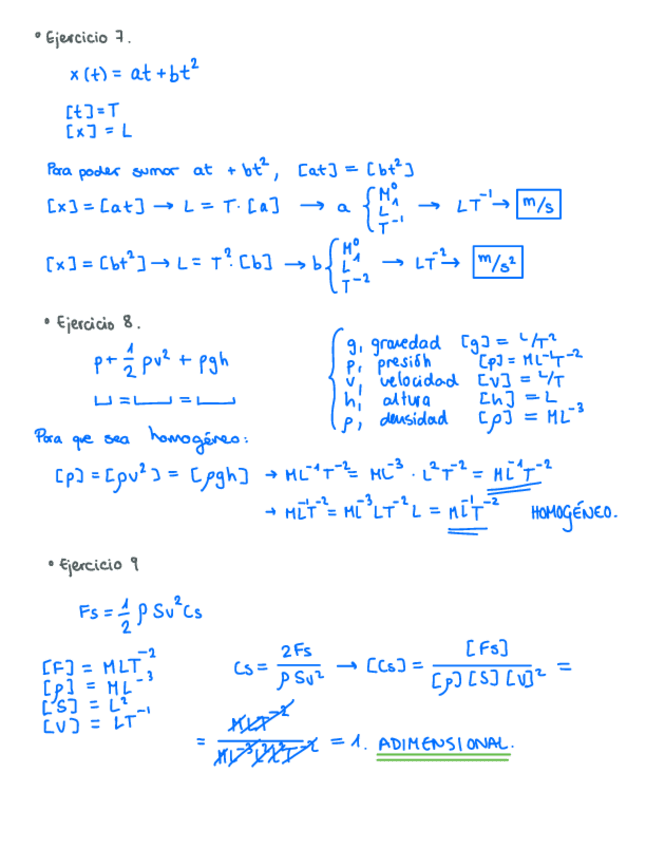 • Ejercicio 7.
x(t) = at + bt²
[t] = T
[x] = L
Para poder sumar at + bt², [at] = [bt²]
[x] = [at] → L = T · [a] → a { M⁰ L¹ T⁻¹ → LT⁻¹ → m/s
[x] = [bt²] → L = T² · [b] → b { M⁰ L¹ T⁻² → LT⁻² → m/s²
• Ejercicio 8.
p + 1/2 ρv² + ρgh
⎵ = ⎵ = ⎵
g, gravedad [g] = L/T²
p, presión [p] = ML⁻¹T⁻²
v, velocidad [v] = L/T
h, altura [h] = L
ρ, densidad [ρ] = ML⁻³
Para que sea homogéneo:
[p] = [ρv²] = [ρgh] → ML⁻¹T⁻² = ML⁻³ · L²T⁻² = ML⁻¹T⁻²
→ ML⁻¹T⁻² = ML⁻³LT⁻²L = ML⁻¹T⁻² HOMOGÉNEO.
• Ejercicio 9
Fs = 1/2 ρ Sv²Cs
[F] = MLT⁻²
[ρ] = ML⁻³
[S] = L²
[V] = LT⁻¹
Cs = 2Fs / ρSv² → [Cs] = [Fs] / [ρ][S][V]² =
= MLT⁻² / ML⁻³L²L²T⁻² = 1. ADIMENSIONAL.